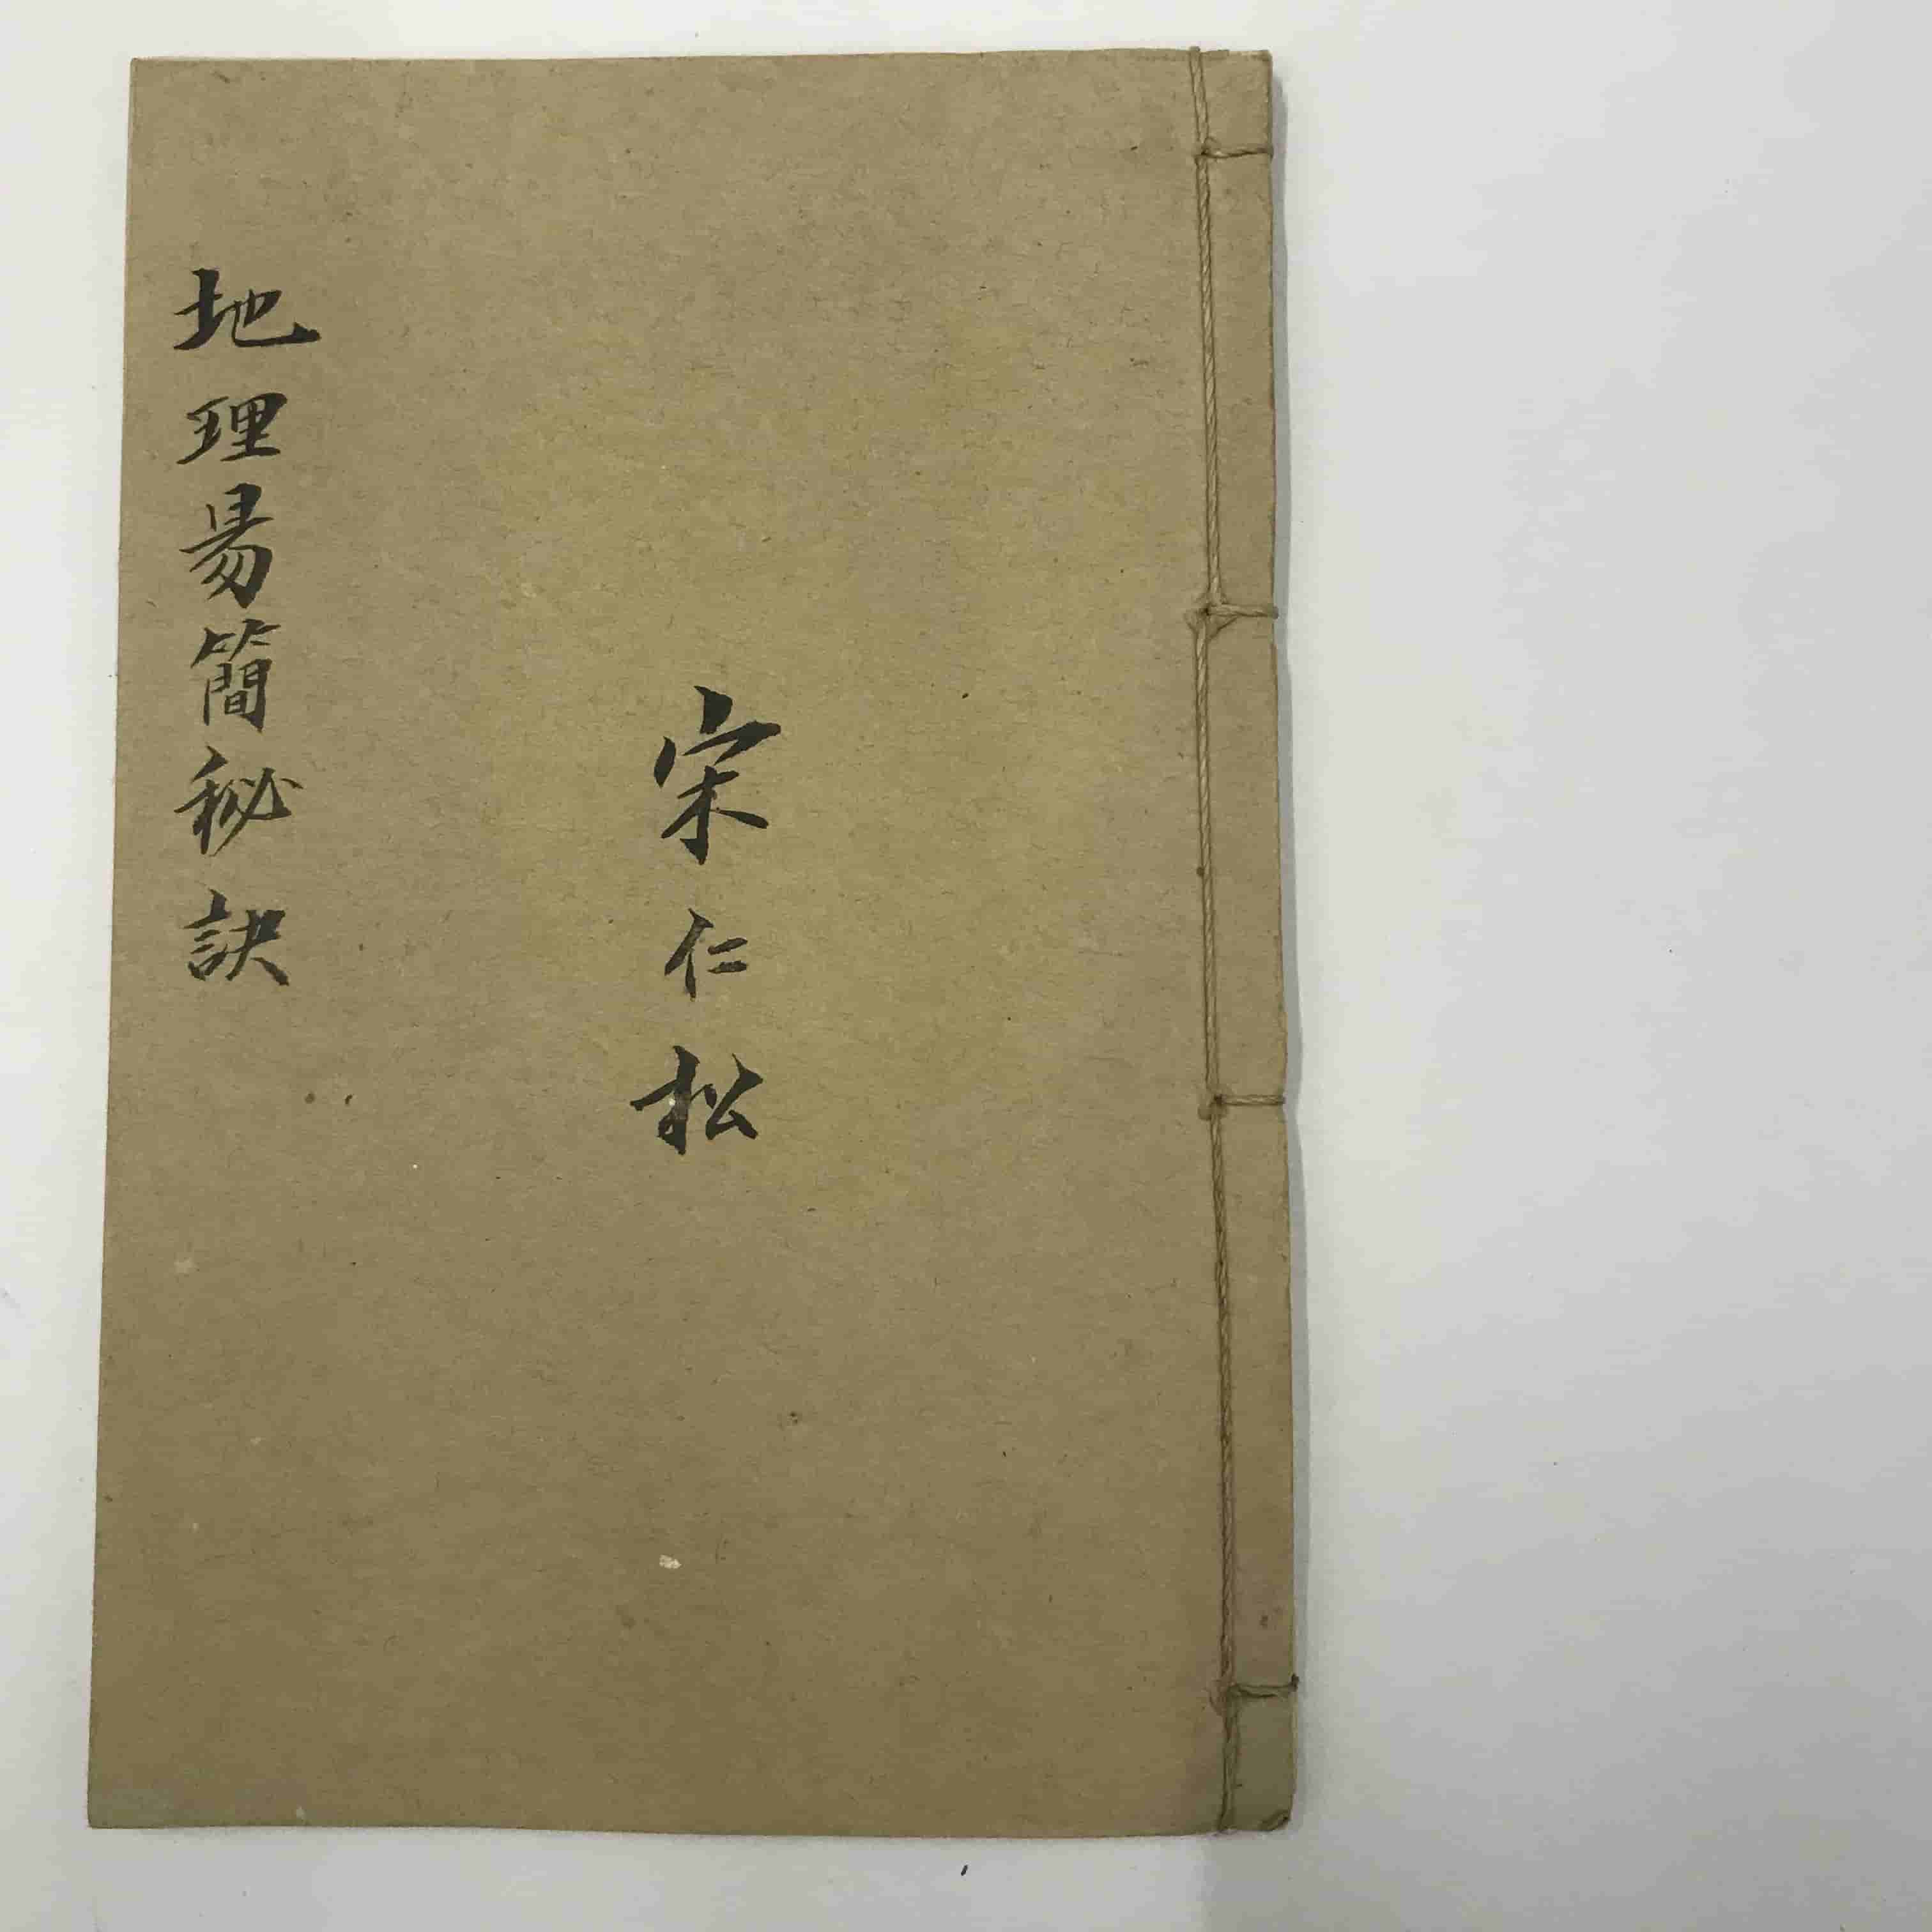 地理易簡秘訣
宋仁松